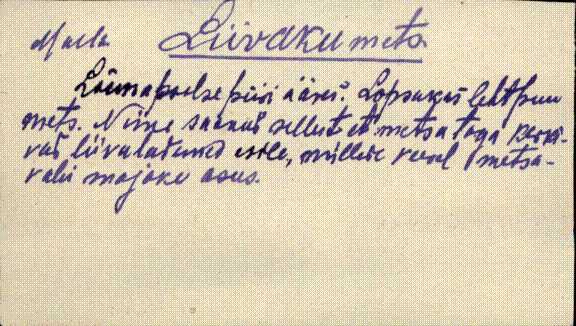 Maala Liivaku mets
Lõunapoolse piiri ääres. Lopsakas lehtpuu
mets. Nime saanud sellest et metsa taga
vad liivalatakud esile, millise veerel metsa-
vahi majake asus.